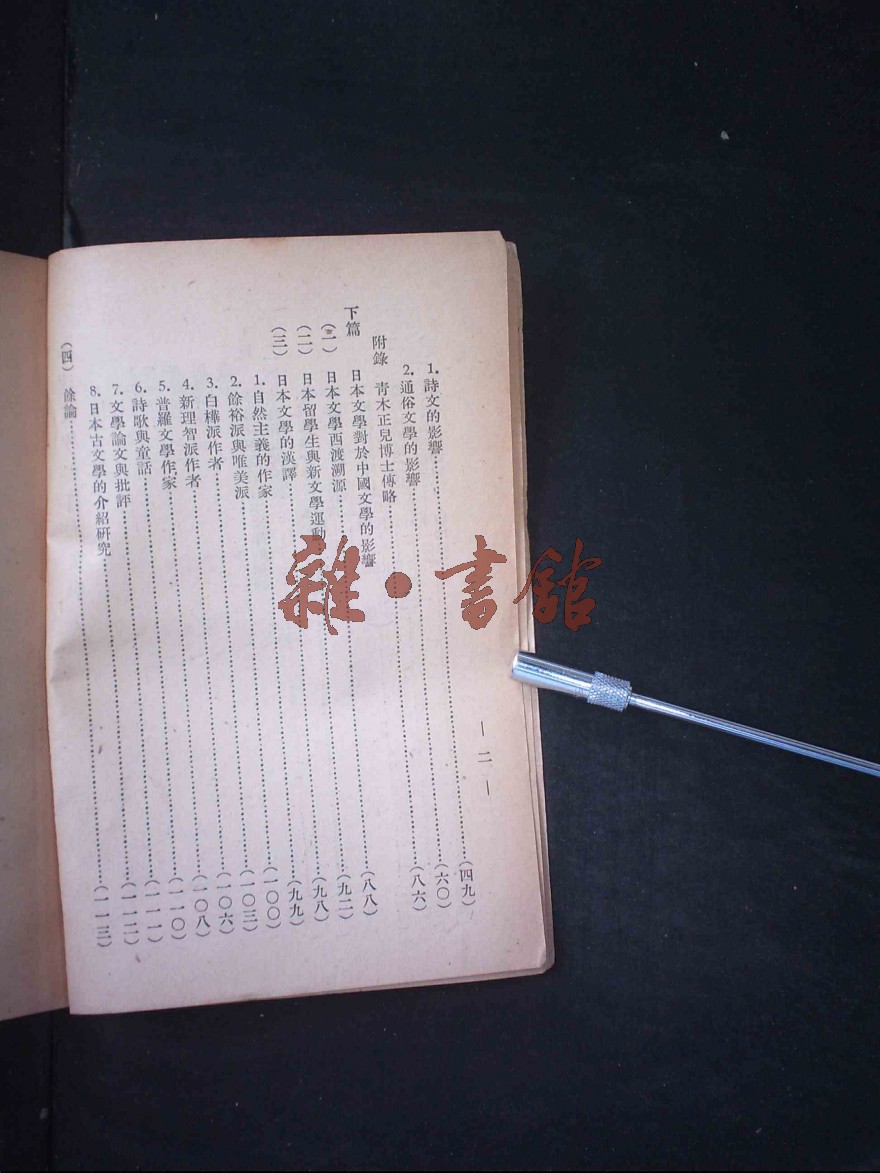 —二—
1.詩文的影響……(四九)
2.通俗文學的影響……(六〇)
附錄 青木正兒博士傳略……(八六)
下篇 日本文學對於中國文學的影響
(一) 日本文學西渡溯源……(八八)
(二) 日本留學生與新文學運動……(九二)
(三) 日本文學的漢譯……(九八)
1.自然主義的作家……(九九)
2.餘裕派與唯美派……(一〇〇)
3.白樺派作者……(一〇三)
4.新理智派作者……(一〇六)
5.普羅文學作家……(一〇八)
6.詩歌與童話……(一一〇)
7.文學論文與批評……(一一一)
8.日本古文學的介紹研究……(一一二)
(四) 餘論……(一一三)
雜·書館